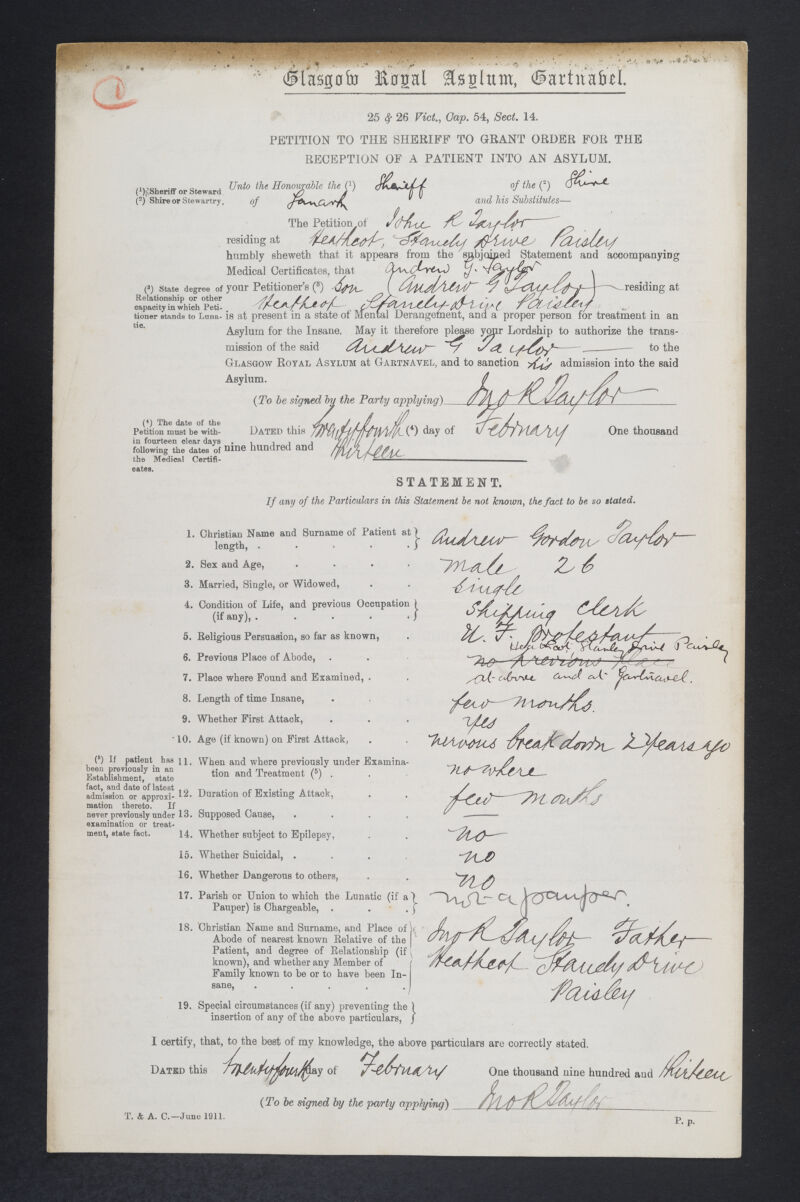 1
Glasgow Royal Asylum, Gartnavel.
25 & 26 Vict., Cap. 54, Sect. 14.
PETITION TO THE SHERIFF TO GRANT ORDER FOR THE
RECEPTION OF A PATIENT INTO AN ASYLUM.
(¹) Sheriff or Steward
(²) Shire or Stewartry.
Unto the Honourable the (¹) Sheriff of the (²) Shire
of Lanark and his Substitutes—
The Petition of John R Taylor
residing at Heathcot, Stanely Drive Paisley
humbly sheweth that it appears from the subjoined Statement and accompanying
Medical Certificates, that Andrew G. Taylor
(³) State degree of
Relationship or other
capacity in which Peti-
tioner stands to Luna-
tic.
your Petitioner's (³) Son (Andrew G Taylor) residing at
Heathcot Stanely Drive Paisley
is at present in a state of Mental Derangement, and a proper person for treatment in an
Asylum for the Insane. May it therefore please your Lordship to authorize the trans-
mission of the said Andrew G Taylor to the
GLASGOW ROYAL ASYLUM at GARTNAVEL, and to sanction his admission into the said
Asylum.
(To be signed by the Party applying) Jno R Taylor
(⁴) The date of the
Petition must be with-
in fourteen clear days
following the dates of
the Medical Certifi-
cates.
DATED this twentyfourth (⁴) day of February One thousand
nine hundred and thirteen
STATEMENT.
If any of the Particulars in this Statement be not known, the fact to be so stated.
1. Christian Name and Surname of Patient at length, . . . . . Andrew Gordon Taylor
2. Sex and Age, . . . . male 26
3. Married, Single, or Widowed, . . single
4. Condition of Life, and previous Occupation (if any), . . . . . Shipping Clerk
5. Religious Persuasion, so far as known, . U. F. protestant
Heathcot Stanley Drive Paisley
6. Previous Place of Abode, . . . no previous place
7. Place where Found and Examined, . . at above and at Gartnavel.
8. Length of time Insane, . . . few months.
9. Whether First Attack, . . . yes
10. Age (if known) on First Attack, . . nervous breakdown 2 years ago
(⁵) If patient has
been previously in an
Establishment, state
fact, and date of latest
admission or approxi-
mation thereto. If
never previously under
examination or treat-
ment, state fact.
11. When and where previously under Examina-
tion and Treatment (⁵) . . . no where
12. Duration of Existing Attack, . . few months
13. Supposed Cause, . . . . —
14. Whether subject to Epilepsy, . . no
15. Whether Suicidal, . . . . no
16. Whether Dangerous to others, . . no
17. Parish or Union to which the Lunatic (if a
Pauper) is Chargeable, . . . . not a pauper.
18. Christian Name and Surname, and Place of
Abode of nearest known Relative of the
Patient, and degree of Relationship (if
known), and whether any Member of
Family known to be or to have been In-
sane, . . . . . .
Jno R Taylor Father
Heathcot Stanely Drive
Paisley
19. Special circumstances (if any) preventing the
insertion of any of the above particulars,
I certify, that, to the best of my knowledge, the above particulars are correctly stated.
DATED this twentyfourth day of February One thousand nine hundred and thirteen
(To be signed by the party applying) Jno R Taylor
T. & A. C.—June 1911.
P. p.